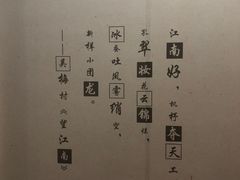 江南好，机杼夺天工
孔翠妆花云锦烂，
冰蚕吐凤雾绡空，
新样小团龙。
——吴梅村《望江南》